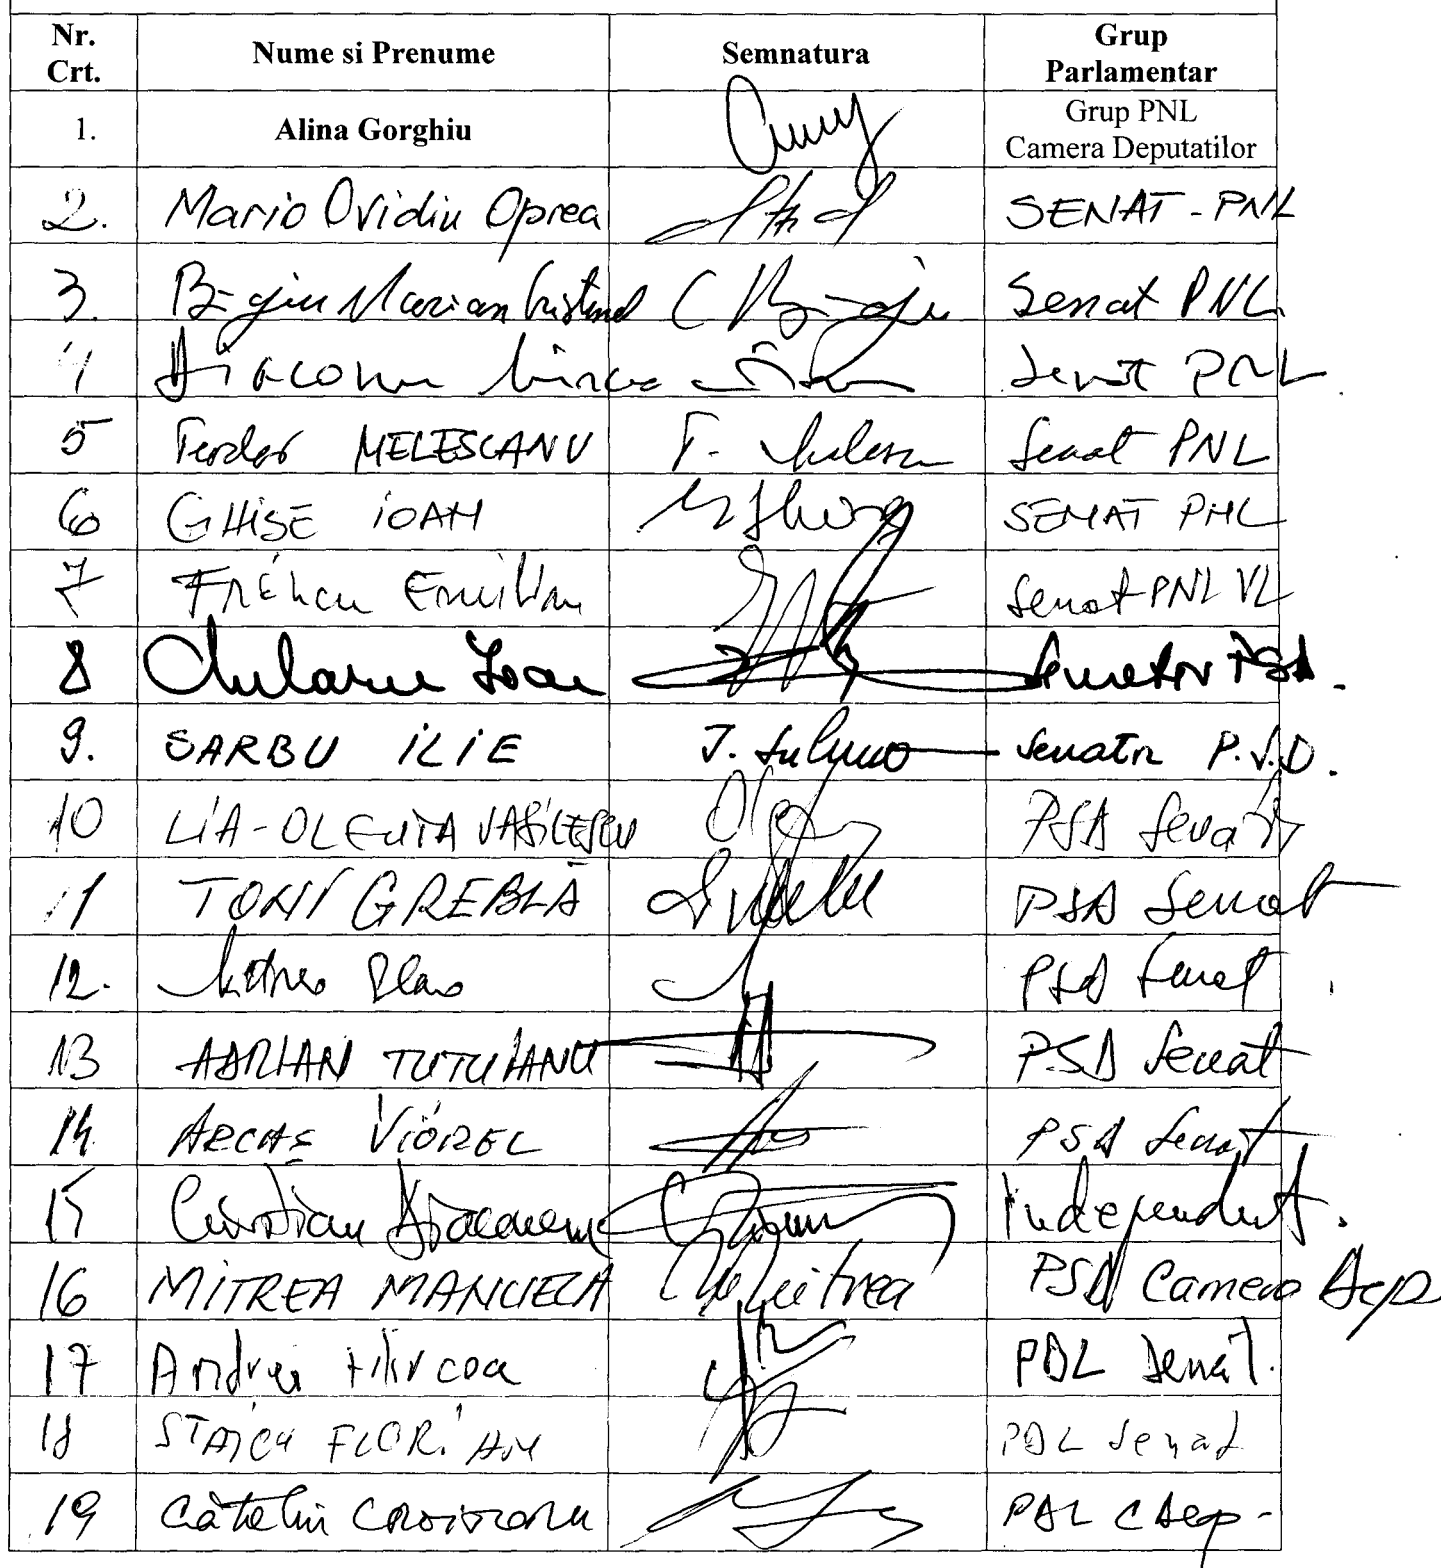 Nr. Crt. Nume si Prenume Semnatura Grup Parlamentar
1. Alina Gorghiu Grup PNL Camera Deputatilor
2. Mario Ovidiu Oprea SENAT - PNL
3. Marian Senat PNL
4 Diaconu Mircea Senat PNL
5 Teodor MELESCANU Senat PNL
6 GHISE IOAN SENAT PNL
7 Frâncu Emilian Senat PNL VL
8 Chelaru Ioan Senator PSD.
9. SARBU ILIE Senator P.S.D.
10 LIA-OLGUTA VASILESCU PSD Senat
11 TONI GREBLĂ PSD Senat
12. PSD Senat
13 ADRIAN TUTUIANU PSD Senat
14 ARCAS VIOREL PSD Senat
15 Cristian Diaconescu Independent.
16 MITREA MANUELA Mitrea PSD Camera Dep
17 Andrei PDL Senat.
18 STAICU FLORIAN PDL Senat
19 Cătălin CROITORU PDL CDep -